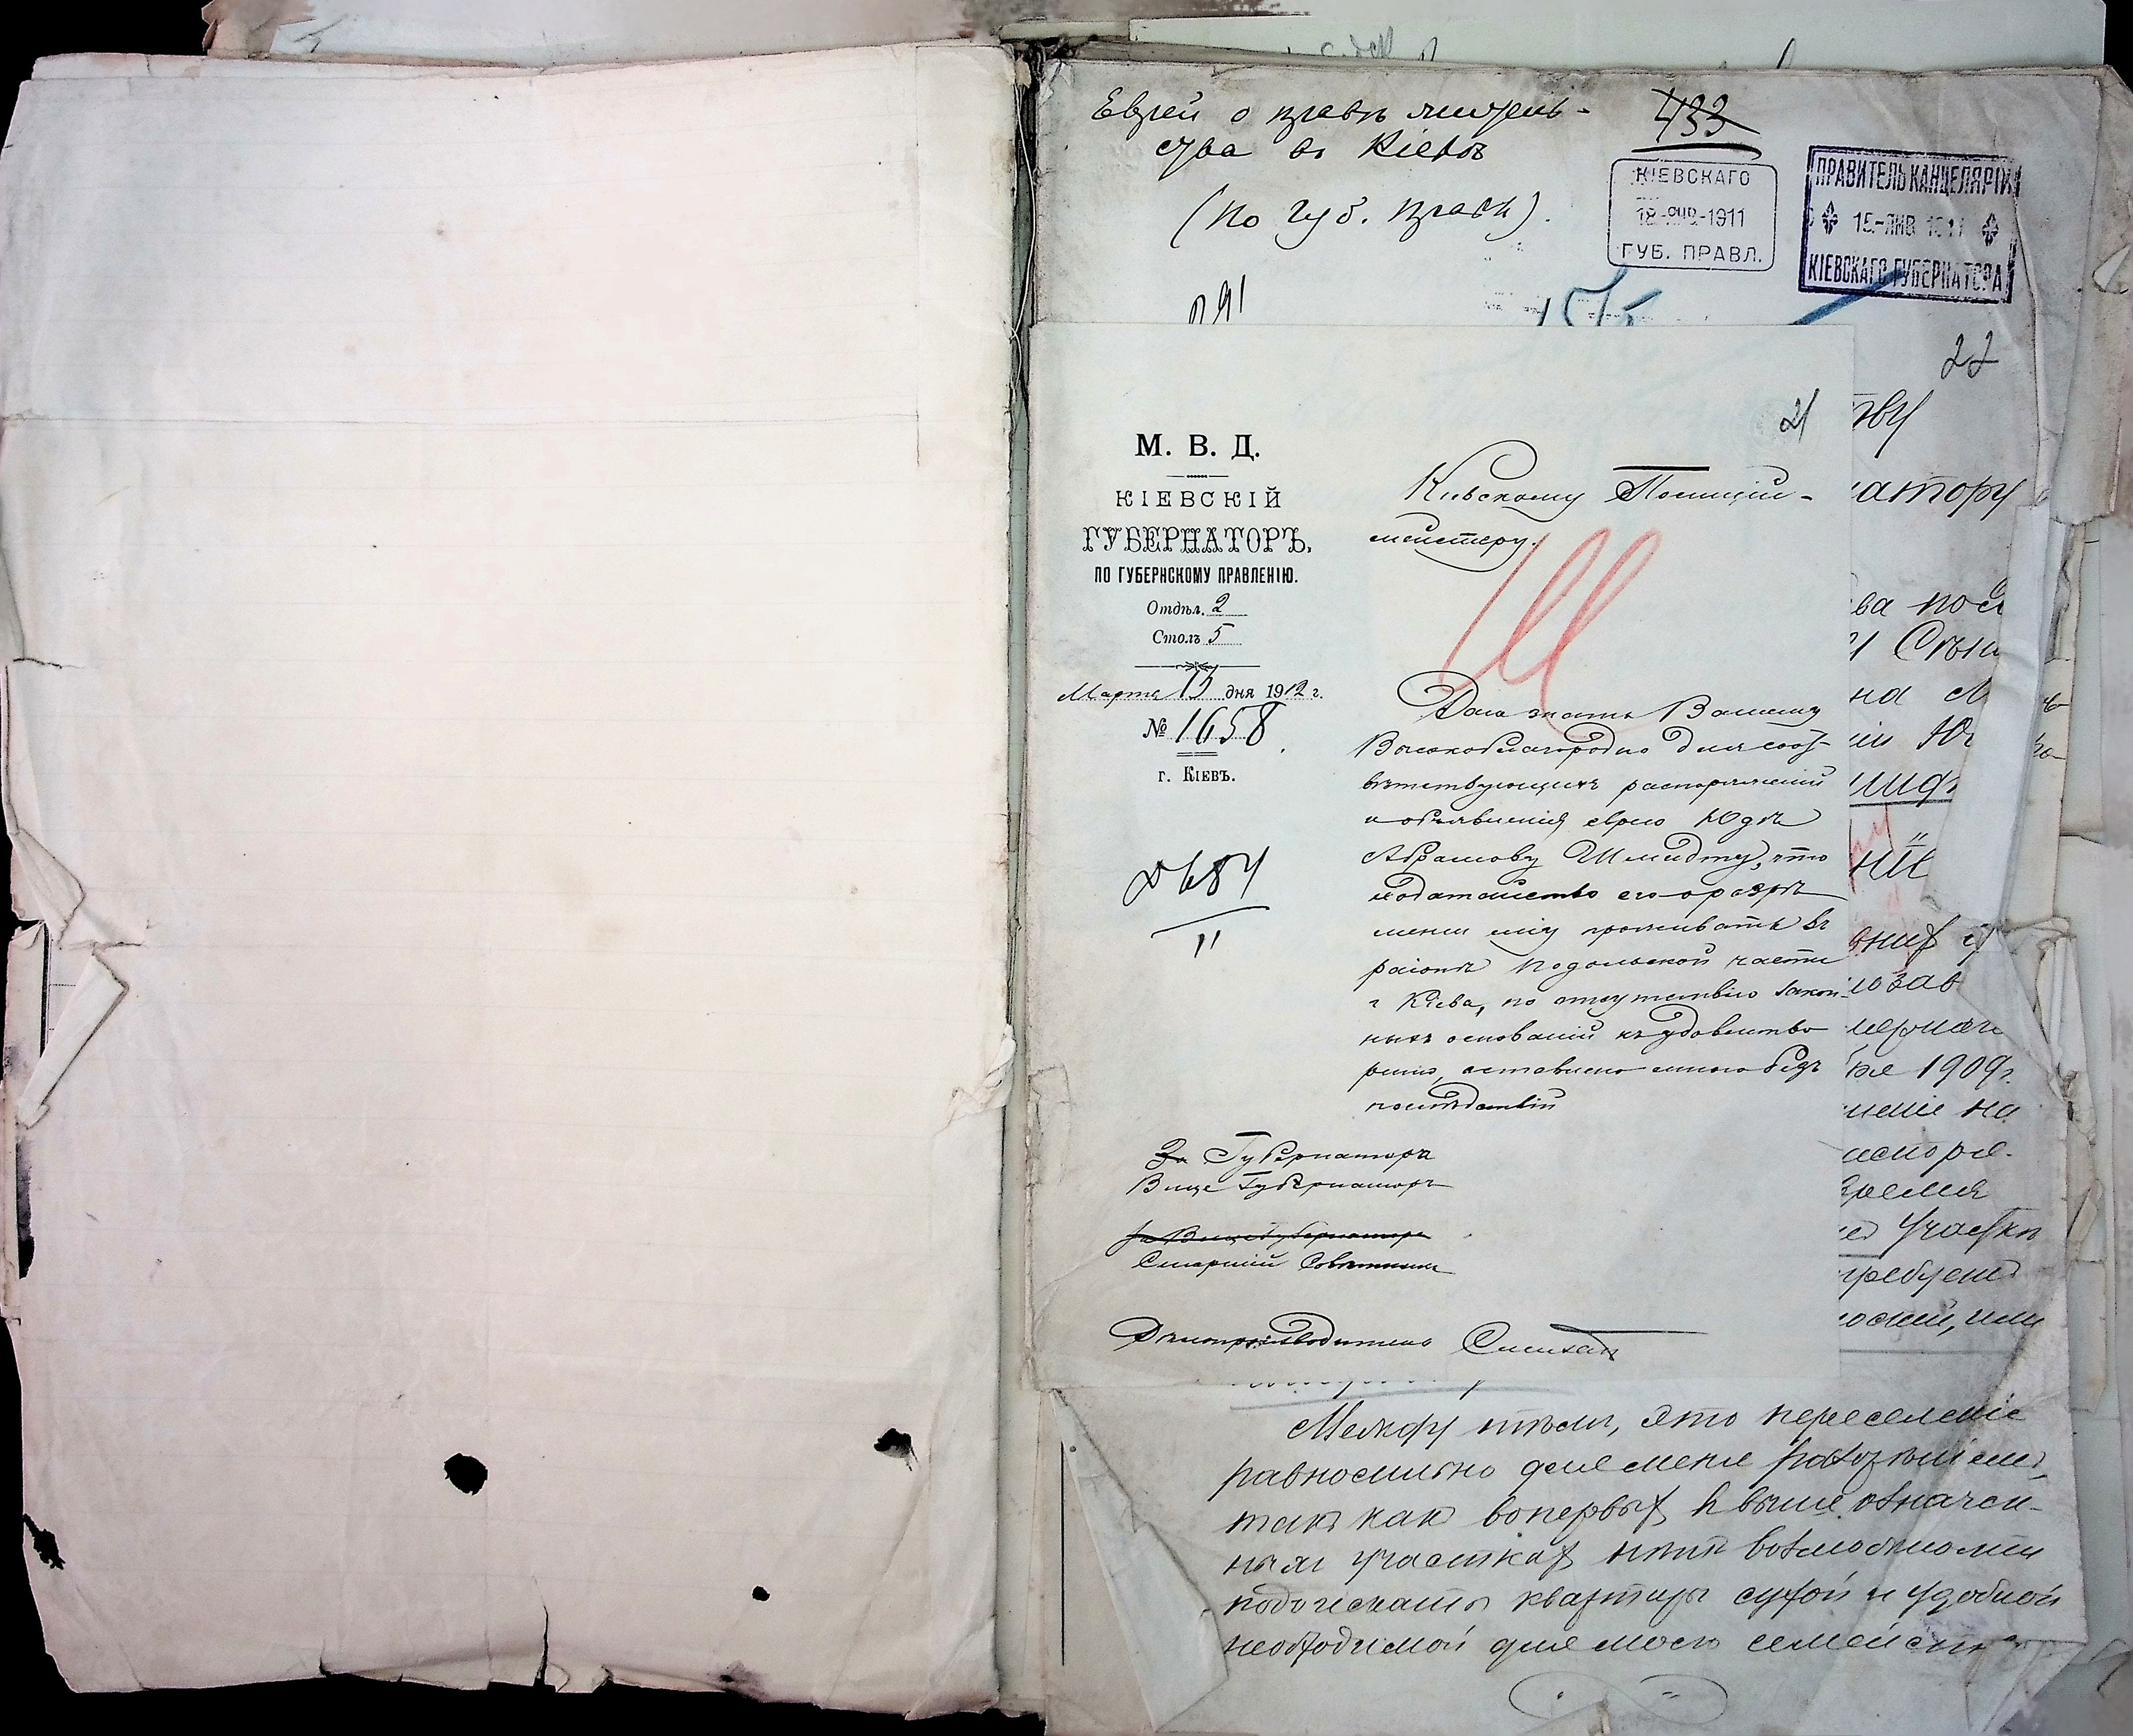 Еврей о правѣ житель-
ства въ Кіевѣ
(по губ. правл).
433
КІЕВСКАГО
18-ЯНВ-1911
ГУБ. ПРАВЛ.
ПРАВИТЕЛЬ КАНЦЕЛЯРІИ
15-ЯНВ 1911
КІЕВСКАГО ГУБЕРНАТОРА
22
21
М. В. Д.
КІЕВСКІЙ
ГУБЕРНАТОРЪ,
ПО ГУБЕРНСКОМУ ПРАВЛЕНІЮ.
Отдѣл. 2
Столъ 5
Марта 13 дня 1912 г.
№ 1658
г. КІЕВЪ.
684
11
Кіевскому Полиціи-
мейстеру.
Даю знать Вашему
Высокоблагородію для соот-
вѣтствующихъ распоряженій
и объявленія еврею Юдѣ
Абрамову Шмидту, что
ходатайство его о разрѣ
шеніи ему проживать въ
районѣ Подольской части
г Кіева, по отсутствію закон-
ныхъ основаній къ удовлетво
ренію, оставлено мною безъ
послѣдствій
За Губернатора
Вице Губернаторъ
За Вице Губернатора
Старшій Совѣтникъ
Дѣлопроизводитель
ву
атору
ва пос
на
ній
бре 1909г.
меніе на
распоря-
время
участки
Между тѣмъ, это переселеніе
равносильно для меня
такъ какъ вопервыхъ въ выше означен-
ныхъ участкахъ нѣтъ возможности
подыскать квартиры сухой и удобной
необходимой для моего семейства